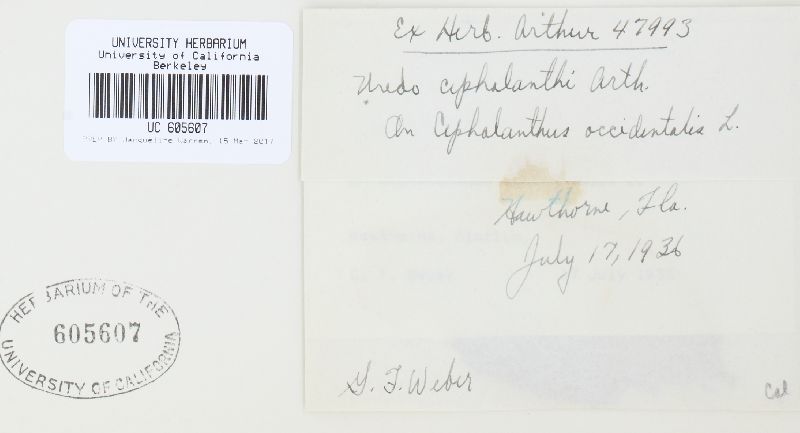 UNIVERSITY HERBARIUM
University of California
Berkeley
UC 605607
PREP BY Jacqueline Warren, 15 Mar 2017
HERBARIUM OF THE
605607
UNIVERSITY OF CALIFORNIA
Ex Herb. Arthur 47993
Uredo cephalanthi Arth.
On Cephalanthus occidentalis L.
Hawthorne, Fla.
July 17, 1936
G. F. Weber
Cal